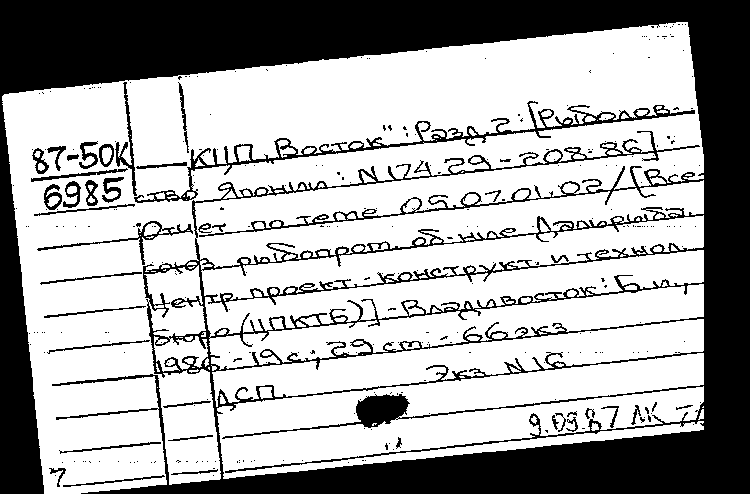 87-50К
6985
КЦП „Восток": Разд. 2: [Рыболов-
ство Японии: N174.29-208-86]:
Отчет по теме 09.07.01.02/[Все-
союз. рыбопром. об-ние Дальрыба.
Центр. проект.-конструкт. и технол.
бюро (ЦПКТБ)]-Владивосток: Б.и.,
1986.-19с.; 29 cm. - 66 экз
ДСП. Экз N16
9.09.87 ЛК
7